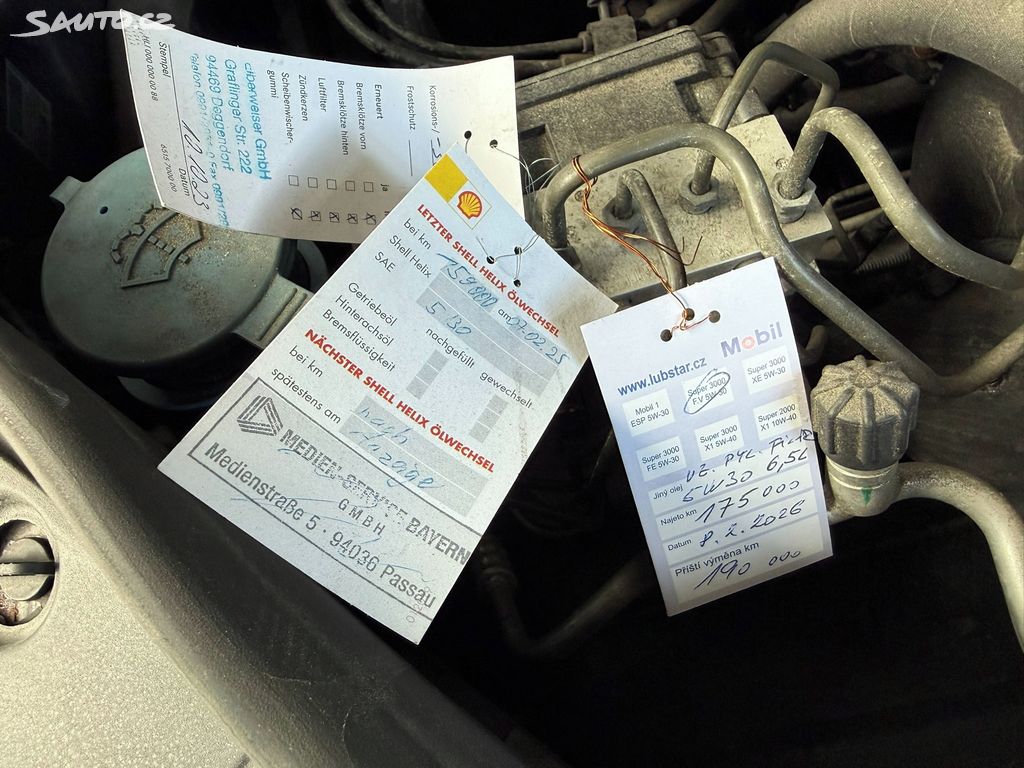 SAUTO.CZ
Stempel
Datum
12.10.23
Ciberweiser GmbH
Graflinger Str. 222
94469 Deggendorf
Scheibenwischer-
gummi
Zündkerzen
Luftfilter
Bremsklötze hinten
Bremsklötze vorn
Erneuert
ja
Frostschutz
Korrosions-/
LETZTER SHELL HELIX ÖLWECHSEL
bei km 159800 am 07.02.25
Shell Helix
SAE 5 30
nachgefüllt gewechselt
Getriebeöl
Hinterachsöl
Bremsflüssigkeit
NÄCHSTER SHELL HELIX ÖLWECHSEL
bei km nach
spätestens am Anzeige
MEDIEN-SERVICE BAYERN
GMBH
Medienstraße 5 · 94036 Passau
Mobil
www.lubstar.cz
Mobil 1
ESP 5W-30
Super 3000
F.V 5W-30
Super 3000
XE 5W-30
Super 3000
FE 5W-30
Super 3000
X1 5W-40
Super 2000
X1 10W-40
VZ. PYL. FILTR
Jiný olej 5W30 6,5L
Najeto km 175 000
Datum 8. 2. 2026
Příští výměna km
190 000